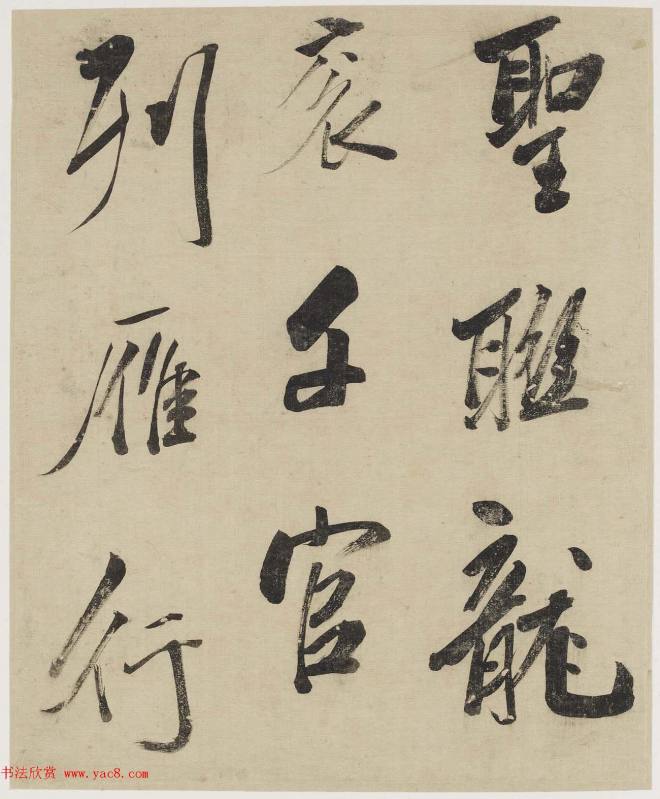 聖聯龍
衮千官
列雁行
书法欣赏 www.yac8.com